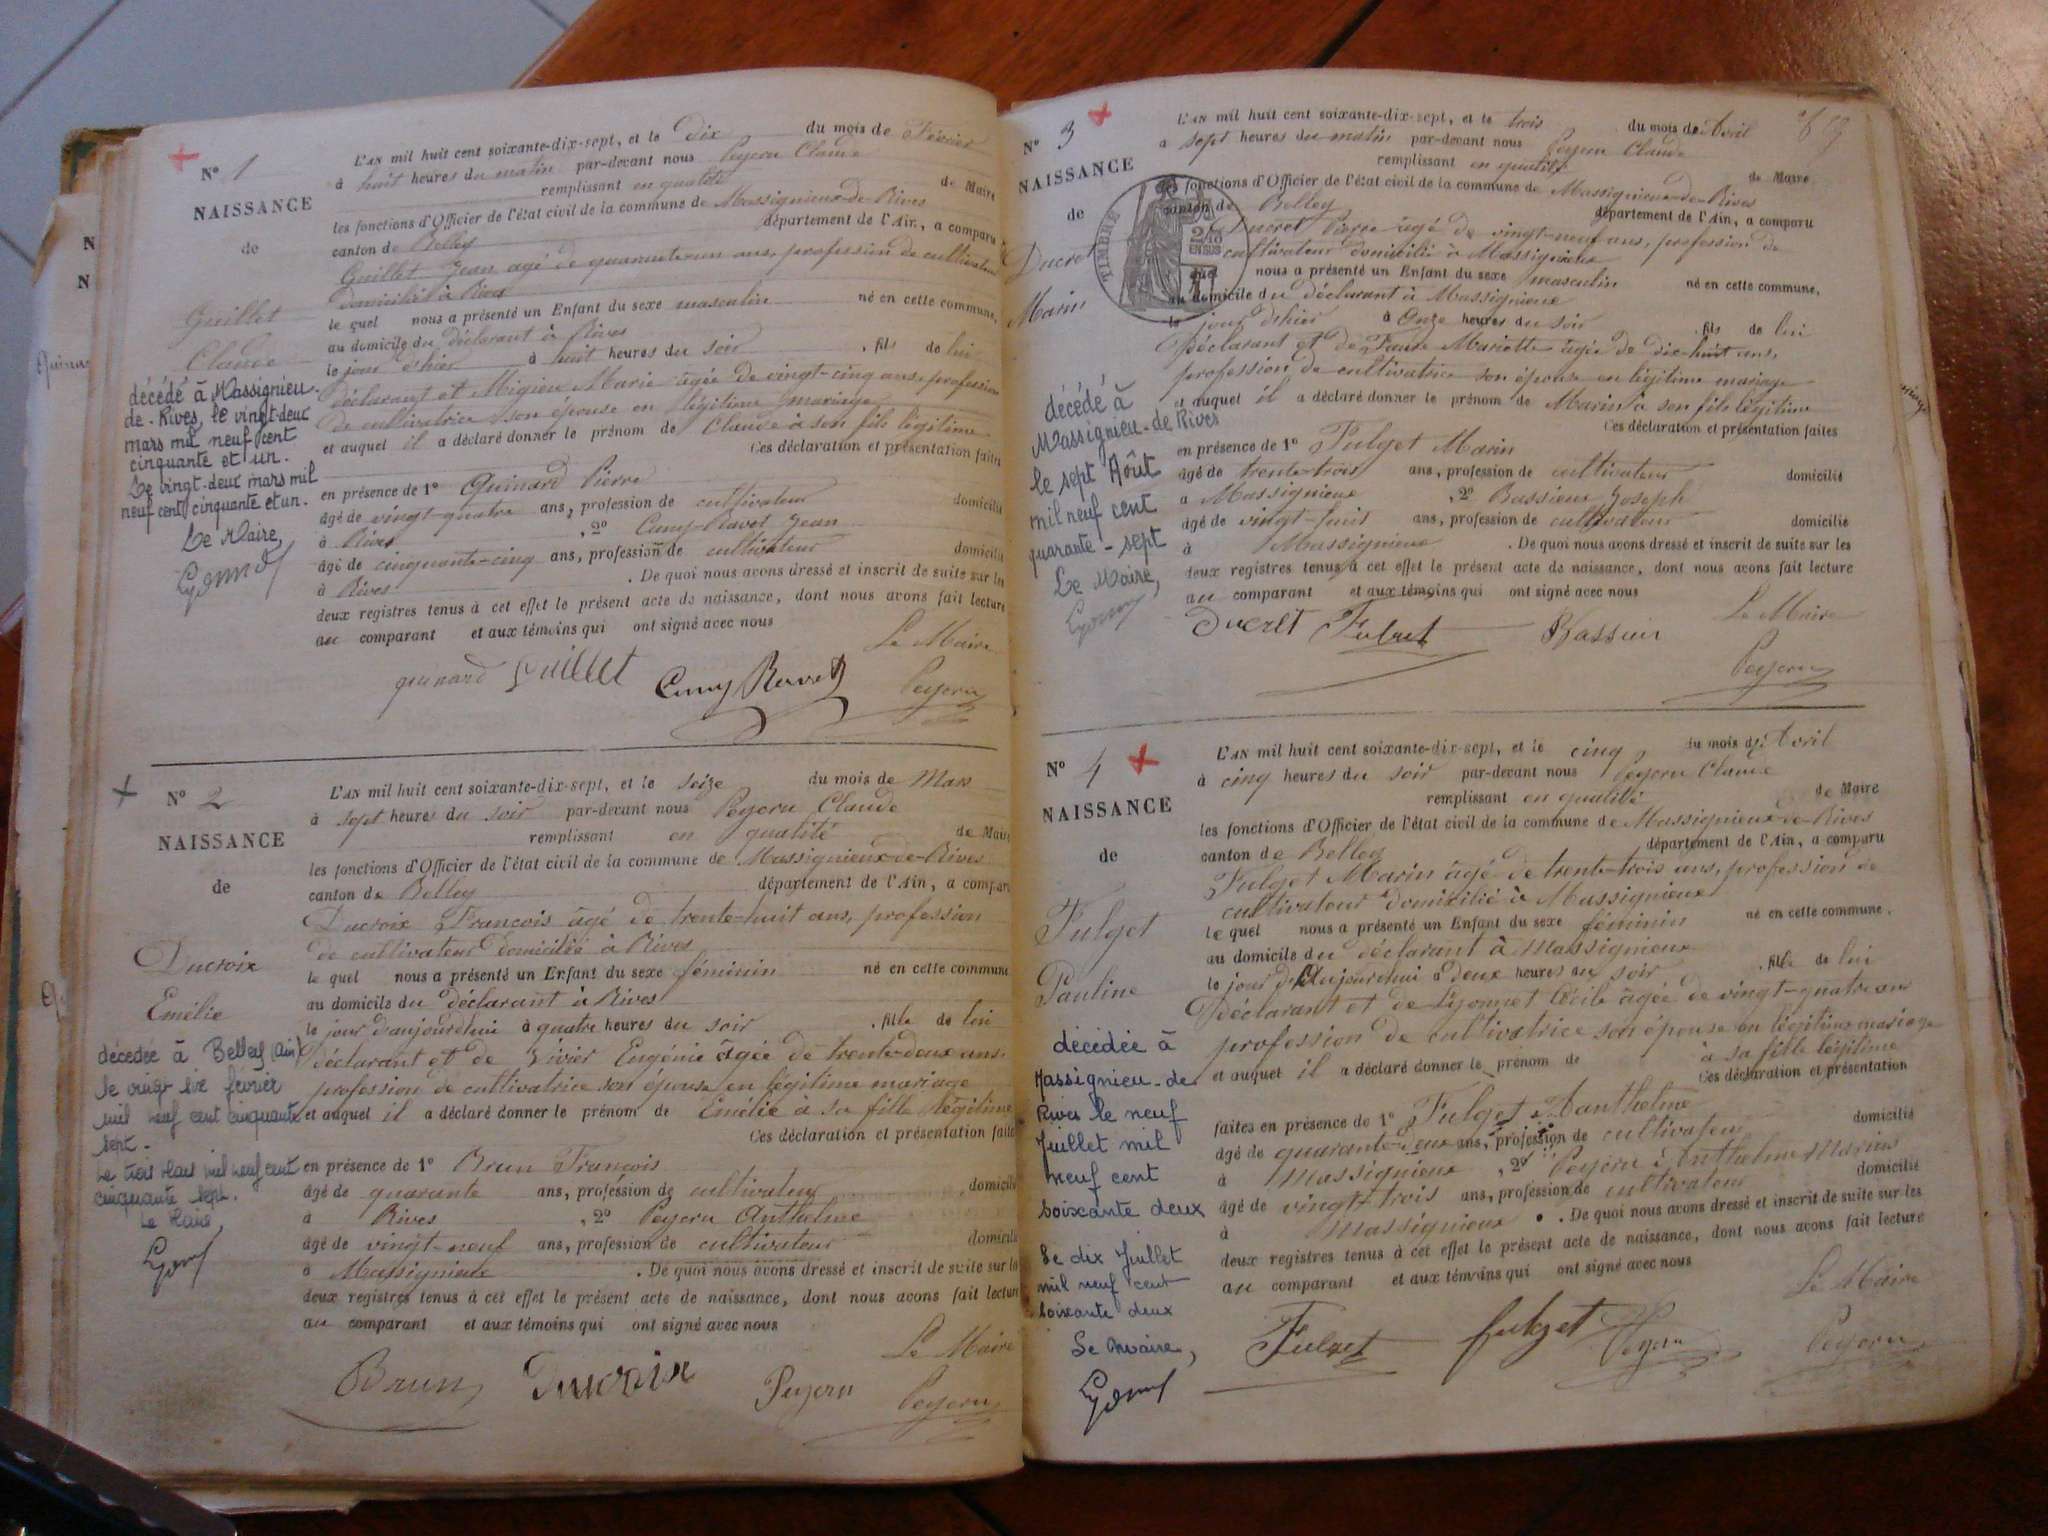 N° 1
NAISSANCE
de
Guillet
Claude
décédé à Massignieu-
de-Rives, le vingt-deux
mars mil neuf cent
cinquante et un.
Le vingt-deux mars mil
neuf cent cinquante et un.
Le Maire,
L'AN mil huit cent soixante-dix-sept, et le dix du mois de Février
à huit heures du matin par-devant nous Peyeru Claude
remplissant en qualité de Maire
les fonctions d'Officier de l'état civil de la commune de Massignieux-de-Rives
canton de Belley département de l'Ain, a comparu
Guillet Jean agé de quarante-un ans, profession de cultivateur
domicilié à Rives
le quel nous a présenté un Enfant du sexe masculin né en cette commune,
au domicile du déclarant à Rives
le jour d'hier à huit heures du soir, fils de lui
déclarant et Migieu Marie âgée de vingt-cinq ans, profession
de cultivatrice son épouse en légitime mariage
et auquel il a déclaré donner le prénom de Claude à son fils légitime
Ces déclaration et présentation faites
en présence de 1° Guinard Pierre
âgé de vingt-quatre ans, profession de cultivateur domicilié
à Rives, 2° Cuny-Ravet Jean
âgé de cinquante-cinq ans, profession de cultivateur domicilié
à Rives. De quoi nous avons dressé et inscrit de suite sur les
deux registres tenus à cet effet le présent acte de naissance, dont nous avons fait lecture
au comparant et aux témoins qui ont signé avec nous
Le Maire
guinard Guillet Cuny Ravet Peyeru
N° 2
NAISSANCE
de
Ducroix
Emélie
décédée à Belley (Ain)
le vingt six février
mil neuf cent cinquante
sept.
Le trois Mars mil neuf cent
cinquante sept.
Le Maire,
L'AN mil huit cent soixante-dix-sept, et le seize du mois de Mars
à sept heures du soir par-devant nous Peyeru Claude
remplissant en qualité de Maire
les fonctions d'Officier de l'état civil de la commune de Massignieux-de-Rives
canton de Belley département de l'Ain, a comparu
Ducroix François âgé de trente-huit ans, profession
de cultivateur domicilié à Rives
le quel nous a présenté un Enfant du sexe féminin né en cette commune
au domicile du déclarant à Rives
le jour d'aujourd'hui à quatre heures du soir, fille de lui
déclarant et de Livier Eugénie âgée de trente-deux ans,
profession de cultivatrice son épouse en légitime mariage
et auquel il a déclaré donner le prénom de Emélie à sa fille légitime
Ces déclaration et présentation faites
en présence de 1° Brun François
âgé de quarante ans, profession de cultivateur, domicilié
à Rives, 2° Peyeru Anthelme
âgé de vingt-neuf ans, profession de cultivateur domicilié
à Massignieux. De quoi nous avons dressé et inscrit de suite sur les
deux registres tenus à cet effet le présent acte de naissance, dont nous avons fait lecture
au comparant et aux témoins qui ont signé avec nous
Le Maire
Brun Ducroix Peyeru Peyeru
N° 3
NAISSANCE
de
Ducret
Marin
TIMBRE
2/10
EN SUS
décédé à
Massignieu-de Rives
le sept Août
mil neuf cent
quarante-sept
Le Maire,
L'AN mil huit cent soixante-dix-sept, et le trois du mois de Avril
à sept heures du matin par-devant nous Peyeru Claude
remplissant en qualité de Maire
les fonctions d'Officier de l'état civil de la commune de Massignieux-de-Rives
canton de Belley département de l'Ain, a comparu
Ducret Pierre âgé de vingt-neuf ans, profession de
cultivateur domicilié à Massignieux
quel nous a présenté un Enfant du sexe masculin né en cette commune,
au domicile du déclarant à Massignieux
le jour d'hier à onze heures du soir, fils de lui
déclarant et de Faure Mariette âgée de dix-huit ans,
profession de cultivatrice son épouse en légitime mariage
et auquel il a déclaré donner le prénom de Marin à son fils légitime
Ces déclaration et présentation faites
en présence de 1° Fulget Marin
âgé de trente-trois ans, profession de cultivateur domicilié
à Massignieux, 2° Bassieux Joseph
âgé de vingt-huit ans, profession de cultivateur domicilié
à Massignieux. De quoi nous avons dressé et inscrit de suite sur les
deux registres tenus à cet effet le présent acte de naissance, dont nous avons fait lecture
au comparant et aux témoins qui ont signé avec nous
Le Maire
Ducret Fulget Peyeru
N° 4
NAISSANCE
de
Fulget
Pauline
décédée à
Massignieu-de
Rives le neuf
Juillet mil
neuf cent
soixante deux
Le dix Juillet
mil neuf cent
soixante deux
Le Maire,
L'AN mil huit cent soixante-dix-sept, et le cinq, du mois d'Avril
à cinq heures du soir par-devant nous Peyeru Claude
remplissant en qualité de Maire
les fonctions d'Officier de l'état civil de la commune de Massignieux-de-Rives
canton de Belley département de l'Ain, a comparu
Fulget Marin âgé de trente-trois ans, profession de
cultivateur domicilié à Massignieux
le quel nous a présenté un Enfant du sexe féminin né en cette commune,
au domicile du déclarant à Massignieux
le jour d'Aujourd'hui à deux heures du soir, fille de lui
déclarant et de Lyonnet Cécile âgée de vingt-quatre ans
profession de cultivatrice son épouse en légitime mariage
et auquel il a déclaré donner le prénom de à sa fille légitime
Ces déclaration et présentation
faites en présence de 1° Fulget Anthelme
âgé de quarante-deux ans, profession de cultivateur domicilié
à Massignieux, 2° Peyeru Anthelme Marius
âgé de vingt-trois ans, profession de cultivateur domicilié
à Massignieux. De quoi nous avons dressé et inscrit de suite sur les
deux registres tenus à cet effet le présent acte de naissance, dont nous avons fait lecture
au comparant et aux témoins qui ont signé avec nous
Le Maire
Fulget fulget Peyeru Peyeru